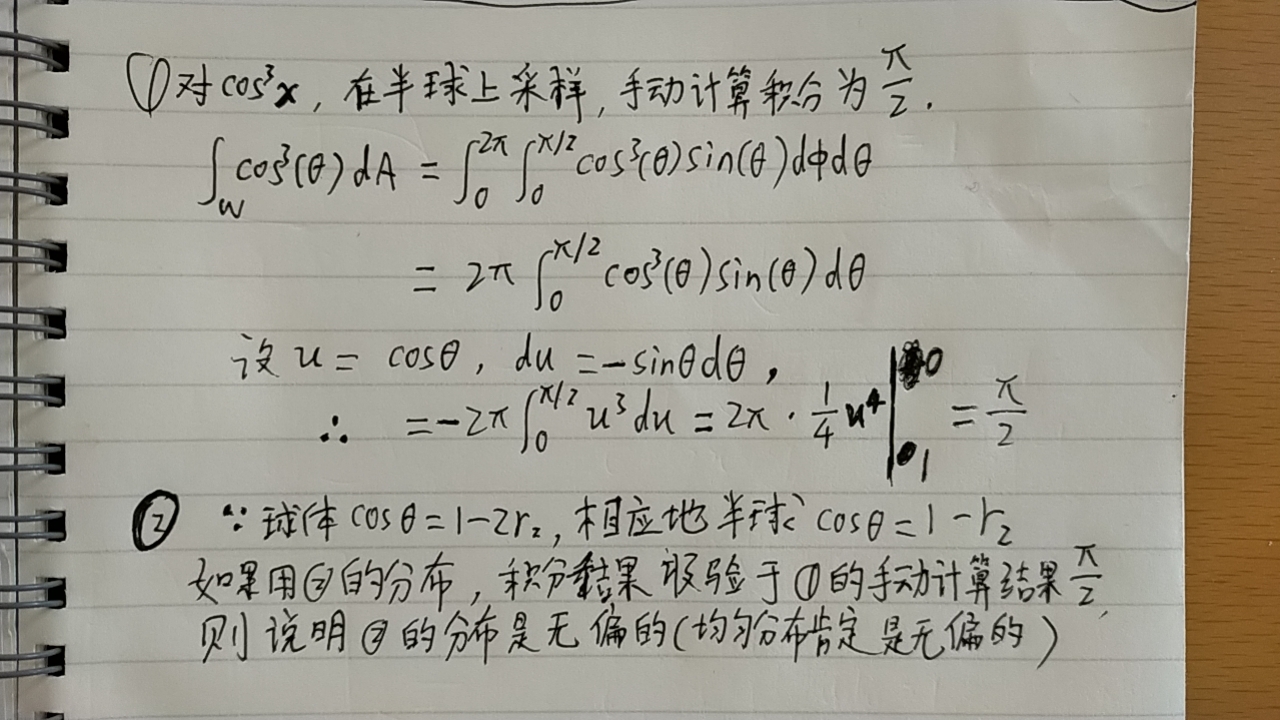 ①对cos³x，在半球上采样，手动计算积分为π/2.
∫_w cos³(θ)dA = ∫₀^{2π} ∫₀^{π/2} cos³(θ)sin(θ)dφdθ
= 2π ∫₀^{π/2} cos³(θ)sin(θ)dθ
设 u = cosθ, du = -sinθdθ,
∴ = -2π ∫₀^{π/2} u³du = 2π · 1/4 u⁴ |₁⁰ = π/2
② ∵球体 cosθ=1-2r₂, 相应地半球 cosθ=1-r₂
如果用②的分布，积分结果 验于①的手动计算结果π/2,
则说明②的分布是无偏的(均匀分布肯定是无偏的)